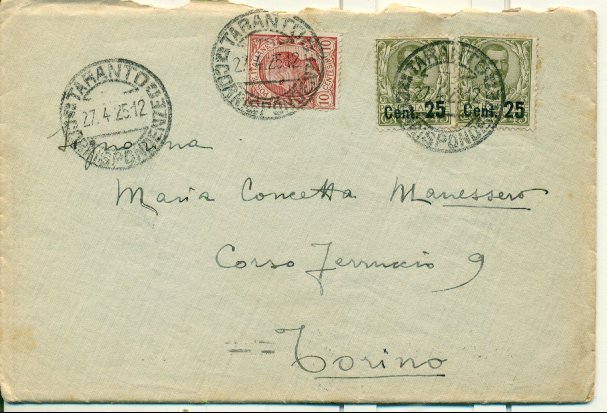 TARANTO
27.4.25.12
CORRISPONDENZE
TARANTO
27.4.25.12
CORRISPONDENZE
10
10
TARANTO
27.4.25.12
CORRISPONDENZE
Cent. 25
Cent. 25
Signorina
Maria Concetta Manessero
Corso Ferruccio 9
Torino